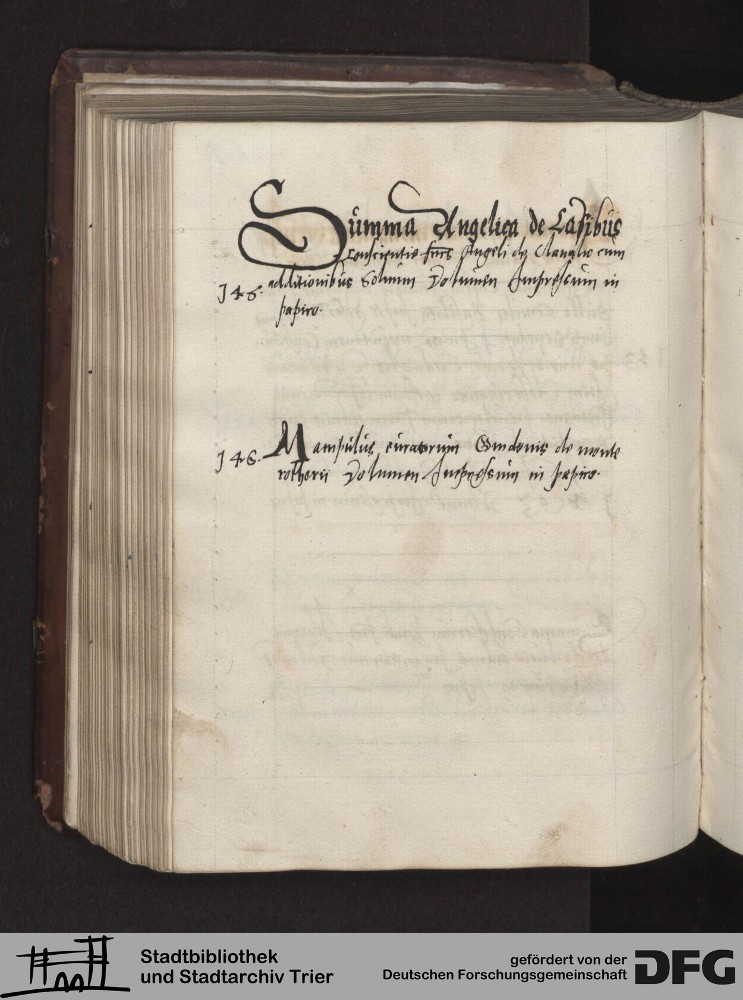 Summa Angelica de Casibus
conscientie fris Angeli de Clavasio cum
145. additionibus Solium Volumen Impressum in
papiro.
146. Manipulus curatorum Guidonis de monte
rotherii Volumen Impressum in papiro.
Stadtbibliothek
und Stadtarchiv Trier
gefördert von der
Deutschen Forschungsgemeinschaft
DFG